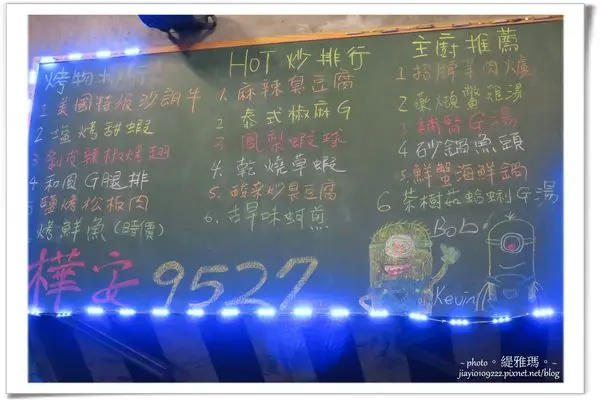 烤物排行
1 美國特級沙朗牛
2 塩烤甜蝦
3 剝皮辣椒烤翅
4 和風G腿排
5 鹽烤松板肉
烤鮮魚(時價)
HOT 炒排行
1. 麻辣臭豆腐
2. 泰式椒麻G
3. 鳳梨蝦球
4. 乾燒草蝦
5. 酸菜炒臭豆腐
6. 古早味蚵煎
主廚推薦
1 招牌羊肉爐
2 鱉雞湯
3 G湯
4 砂鍋魚頭
5. 鮮蟹海鮮鍋
6 茶樹菇蛤蜊G湯
樺安 9527
Bob
Kevin
~ photo。緹雅瑪。~
jiayi0109222.pixnet.net/blog